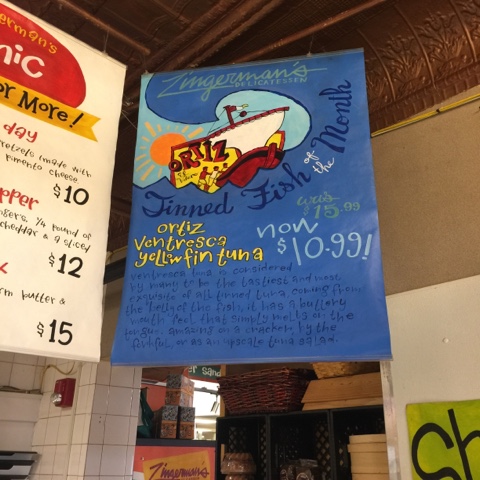 erman's
nic
or More!
day
pretzels (made with
pimento cheese
$10
pper
ngers, 1/4 pound of
cheddar & a sliced
$12
rm butter &
$15
Zingerman's
DELICATESSEN
ORTIZ
Tinned Fish of the Month
was
15.99
now
$10.99!
ortiz
ventresca
yellowfin tuna
ventresca tuna is considered
by many to be the tastiest and most
exquisite of all tinned tuna. coming from
the belly of the fish, it has a buttery
mouth feel that simply melts on the
tongue. amazing on a cracker, by the
forkful, or as an upscale tuna salad.
er sand
Zingerman's
Sh